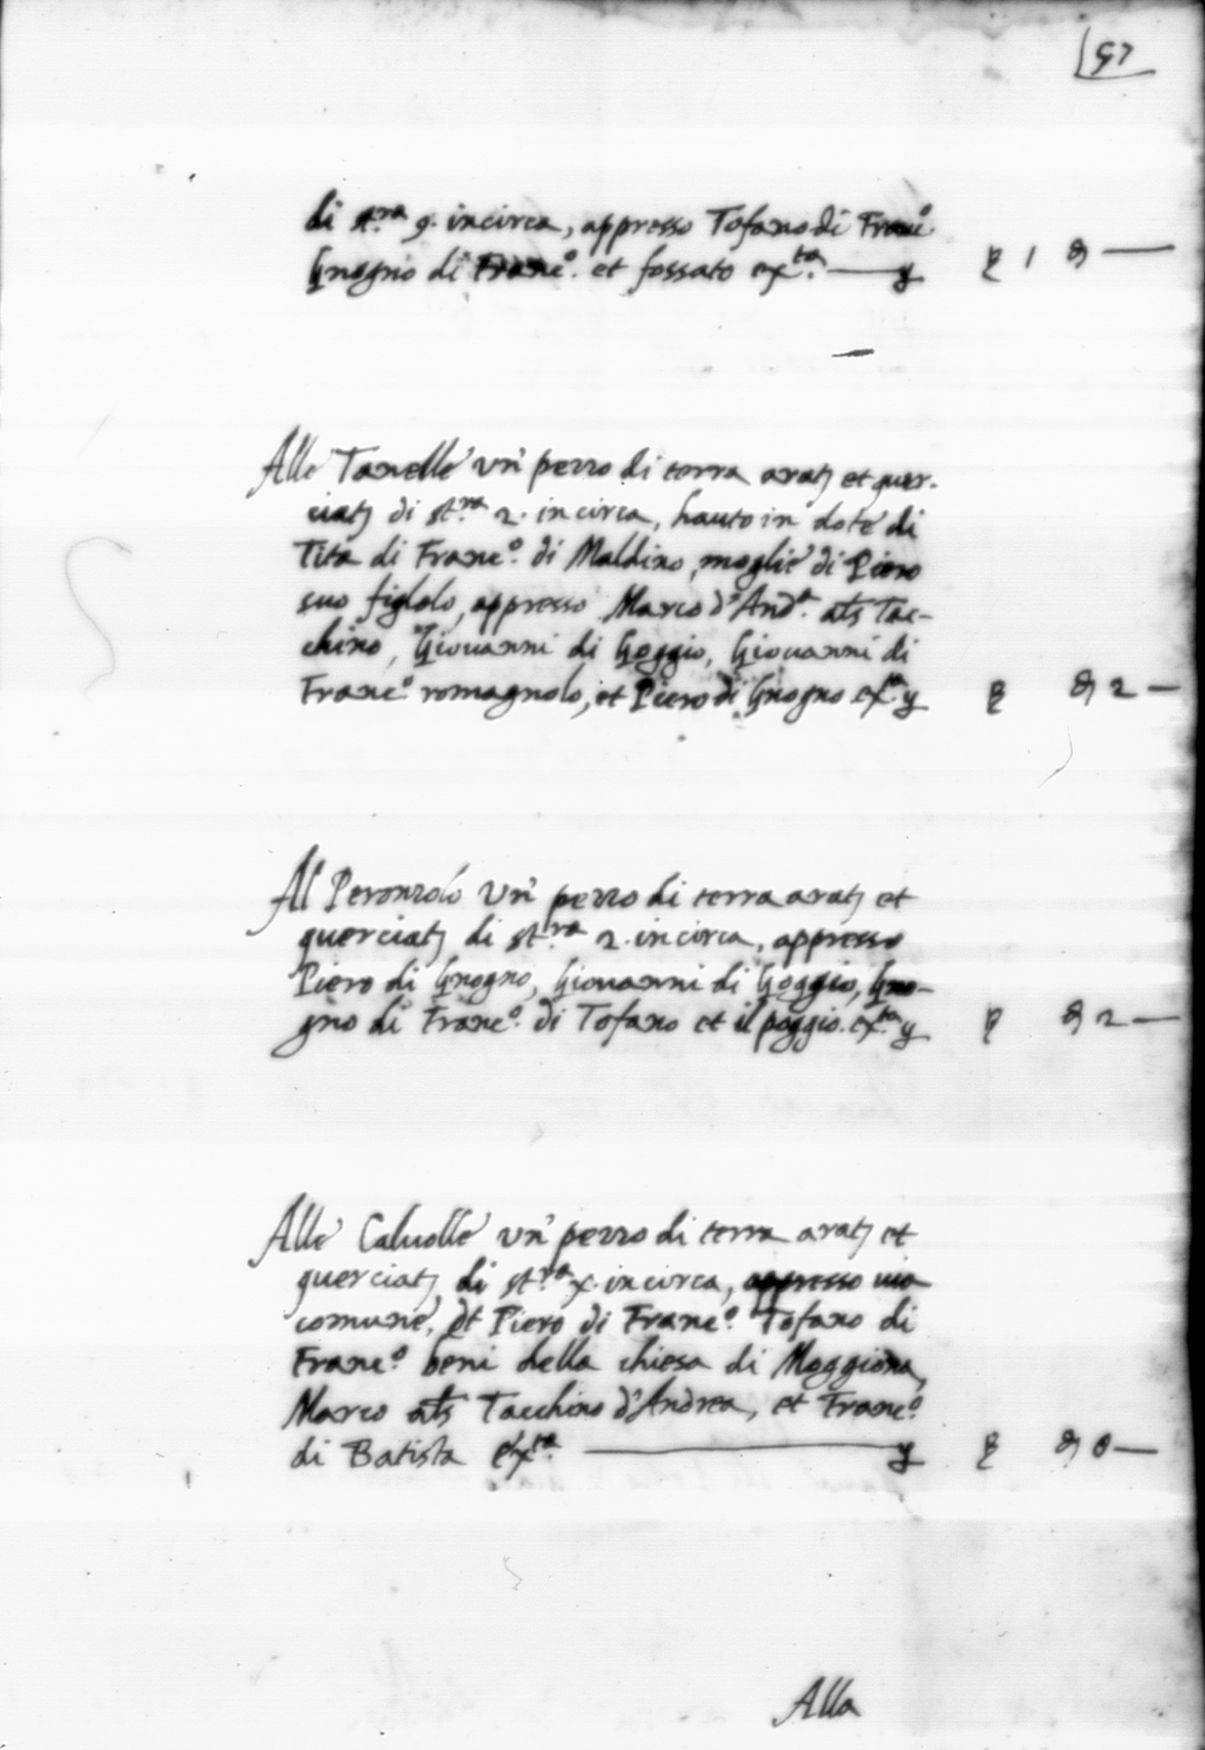 57
di st.ra 9. incirca, appresso Tofano di Franc.o
Gnogno di Franc.o et fossato ex.ta
1
Alle Tanelle un' pezzo di terra arat. et quer-
ciat. di st.ra 2. incirca, hauto in dote di
Tita di Franc.o di Maldino, moglie di Piero
suo figlolo, appresso Marco d'And.a als Tac-
chino, Giovanni di Goggio, Giovanni di
Franc.o romagnolo, et Piero di Gnogno ex.ta
2
Al Peronzolo un' pezzo di terra arat. et
querciat. di st.ra 2. incirca, appresso
Piero di Gnogno, Giovanni di Goggio, Gno-
gno di Franc.o di Tofano et il poggio. ex.ta
2
Alle un' pezzo di terra arat. et
querciat. di st.ra incirca, appresso via
comune, et Piero di Franc.o Tofano di
Franc.o beni della chiesa di Moggiona,
Marco als Tacchino d'Andrea, et Franc.o
di Batista ex.ta
Alla